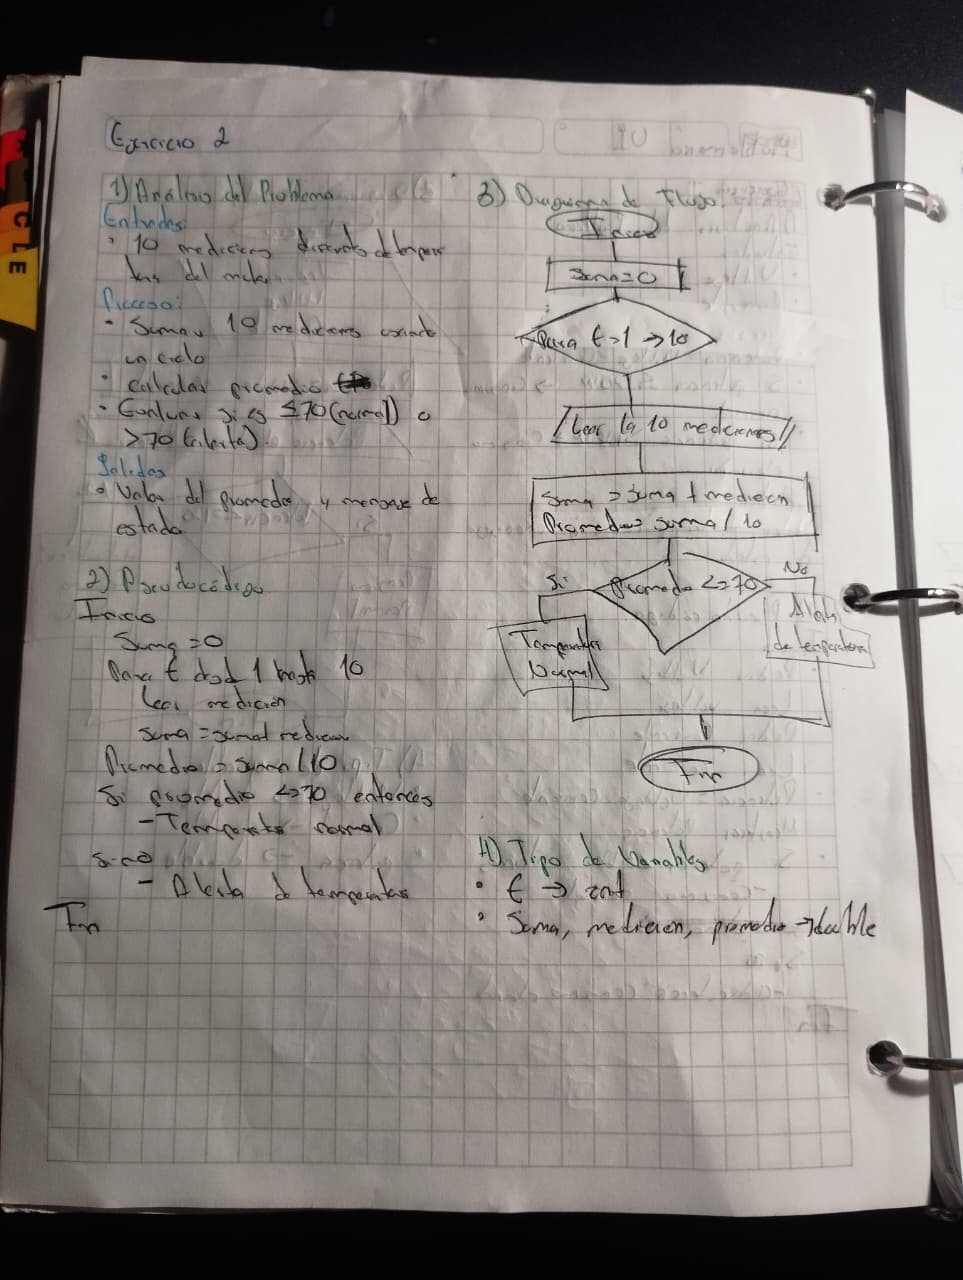 Ejercicio 2
1) Análisis del Problema
Entradas:
• 10 mediciones de
del motor
Proceso:
• Sumar 10 mediciones usando
un ciclo
• Calcular promedio
• Evaluar si es ≤70 (normal) o
>70 (alerta)
Salidas
• Valor del promedio y mensaje de
estado
2) Pseudocódigo
Inicio
Suma = 0
Para t desde 1 hasta 10
Leer medición
suma = suma + medicion
Promedio = suma/10
Si promedio <=70 entonces
- Temperatura normal
sino
- Alerta de temperatura
Fin
3) Diagrama de Flujo
Inicio
Suma=0
Para t=1 → 10
Leer la 10 mediciones
Suma = Suma + medicion
Promedio= suma/10
Promedio <=70
Si
No
Temperatura
Normal
Alerta
de temperatura
Fin
4) Tipo de Variables
• t → int
• Suma, medicion, promedio → double